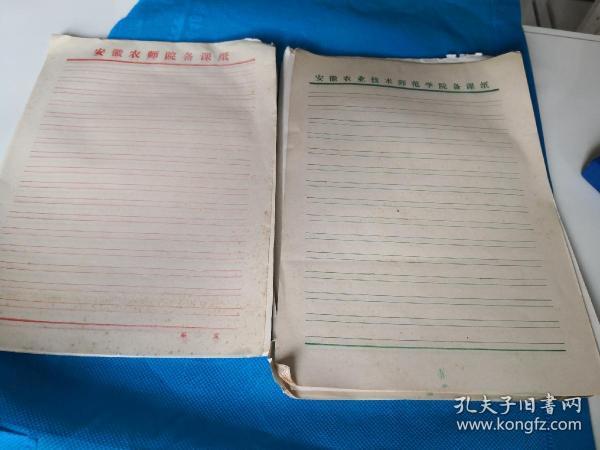 安徽农师院备课纸
第 页
安徽农业技术师范学院备课纸
孔夫子旧书网
www.kongfz.com